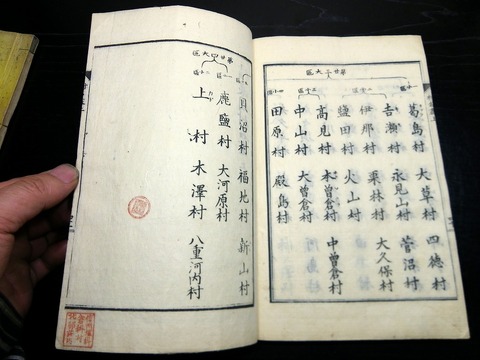 第廿三大區
十二區
十三區
十四區
葛島村 大草村 四徳村
吉瀬村 永見山村 菅沼村
伊那村 栗林村 大久保村
鹽田村 火山村
高見村 本曽倉村 中曽倉村
中山村 大曽倉村
田原村 殿島村
貝沼村 福地村 新山村
鹿鹽村 大河原村
上村 木澤村 八重河内村